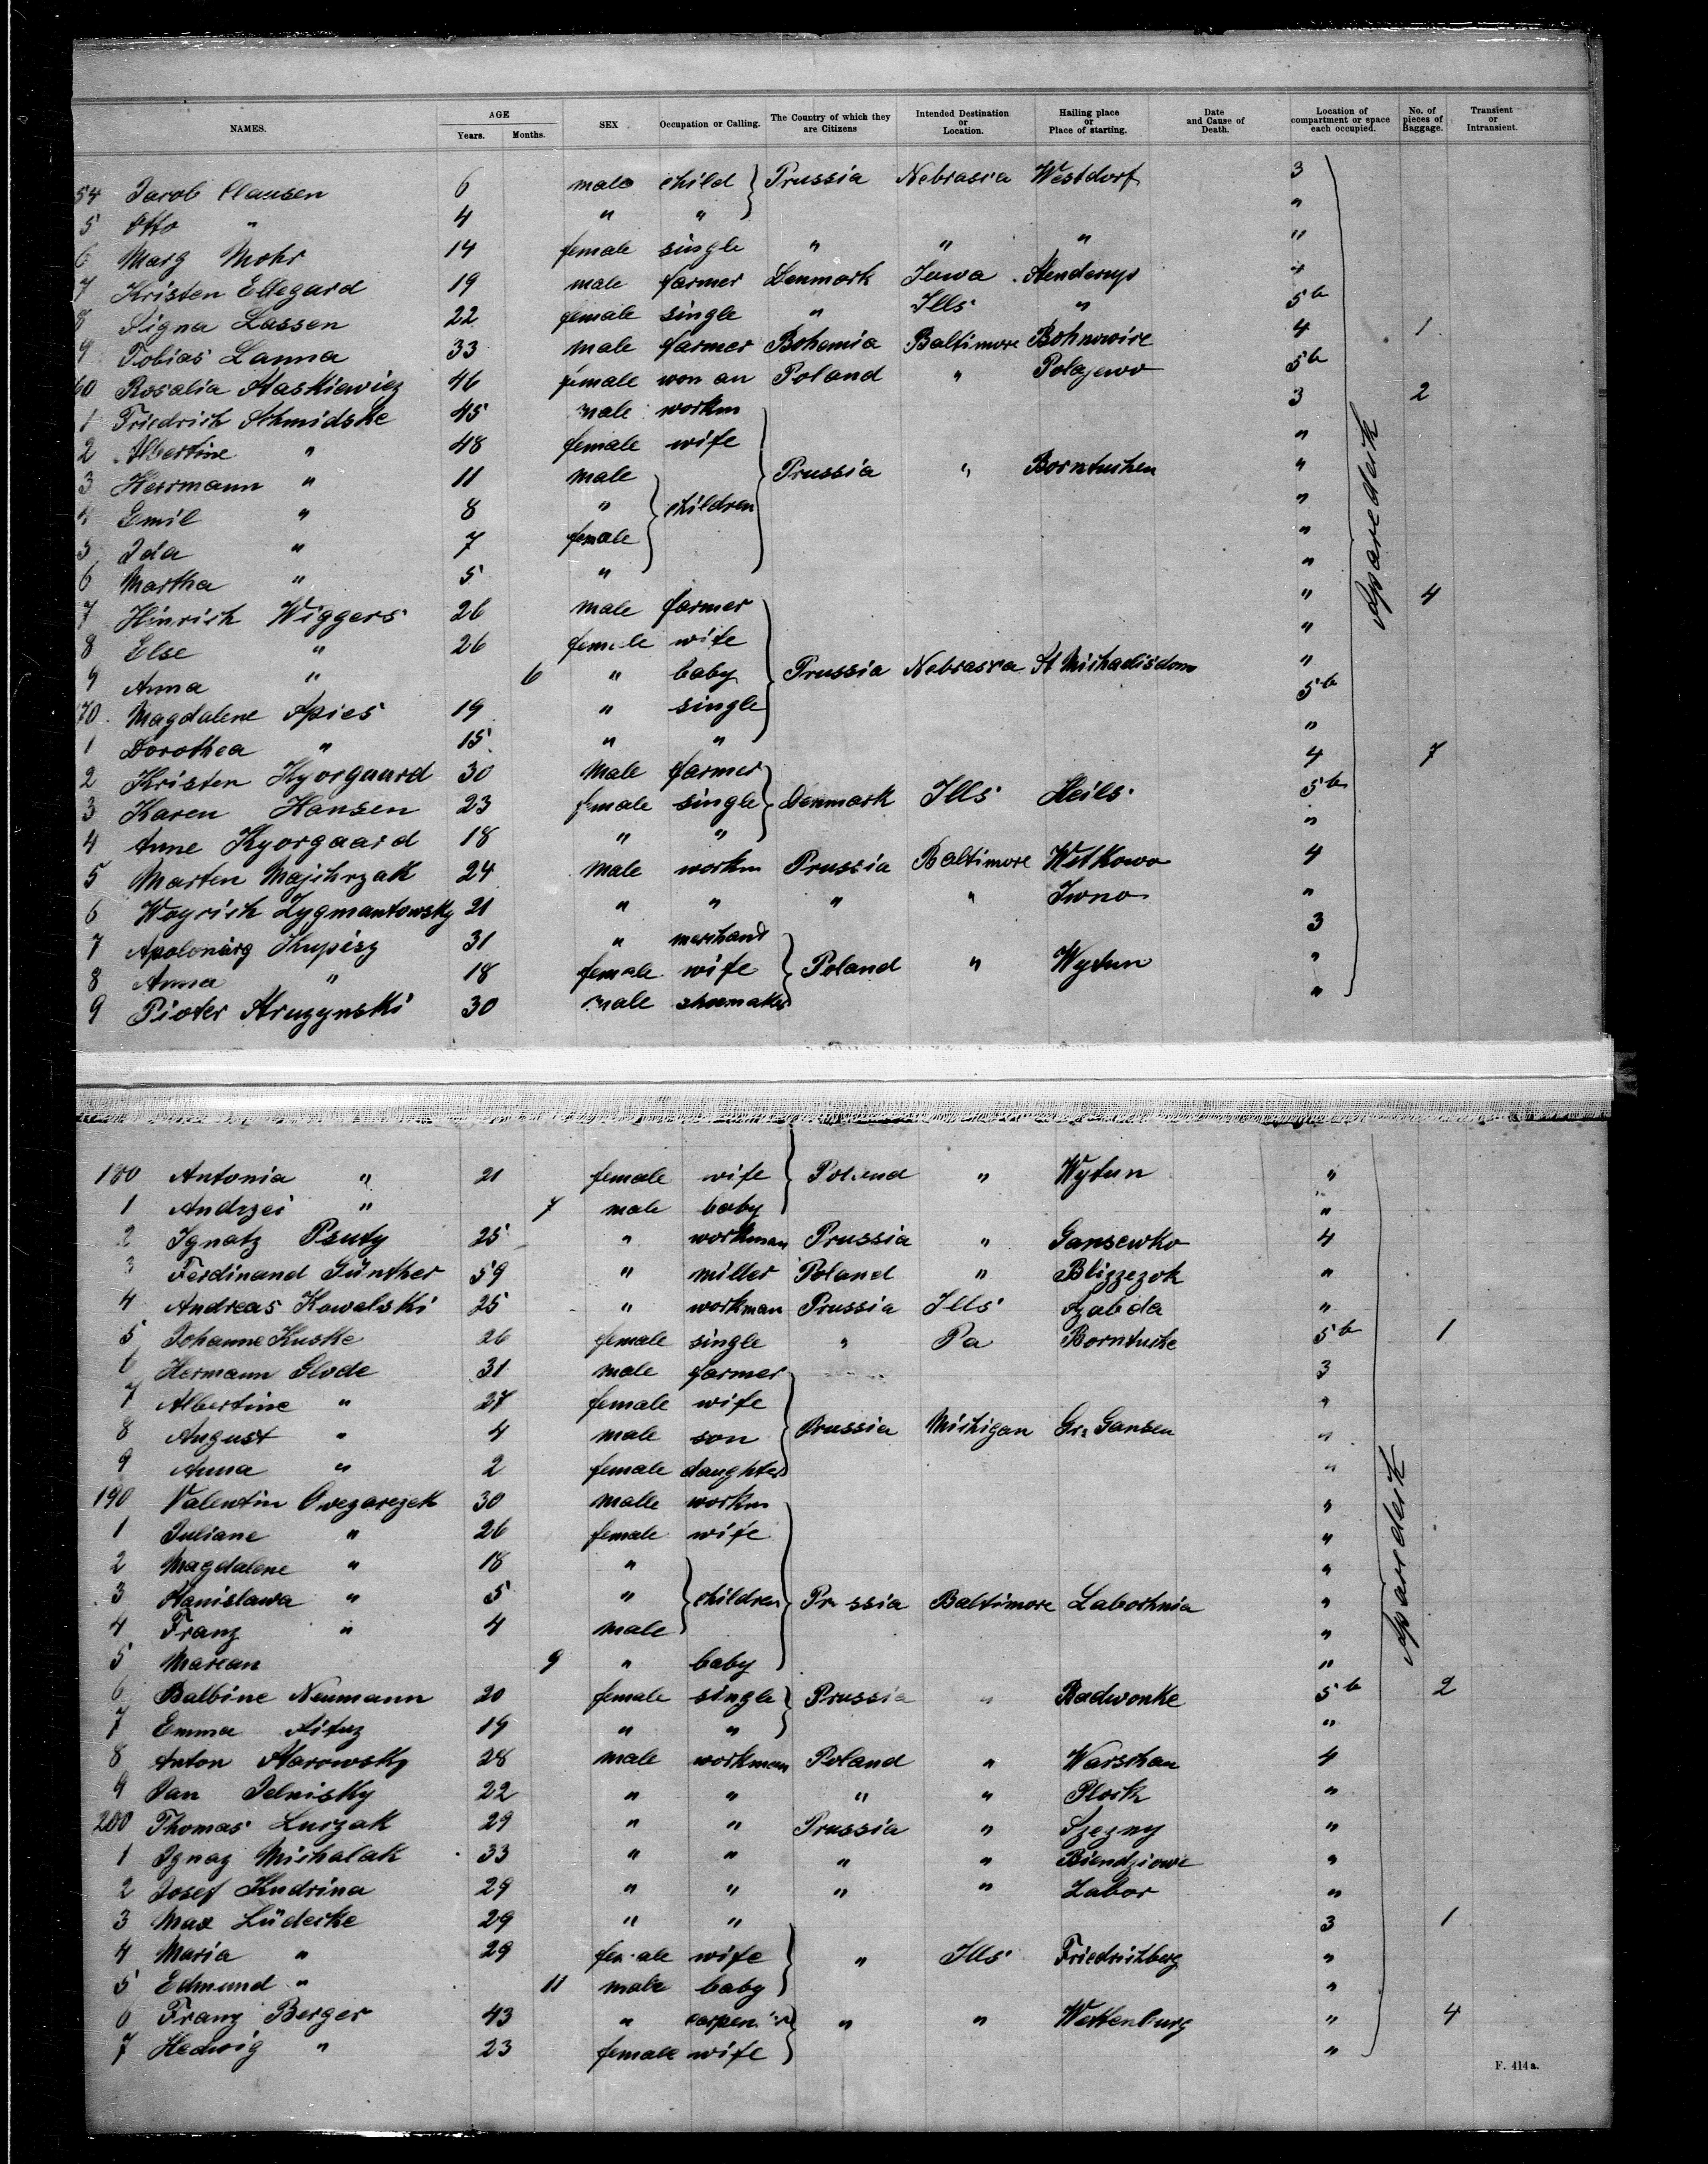 NAMES. AGE Years. Months. SEX Occupation or Calling. The Country of which they are Citizens Intended Destination or Location. Hailing place or Place of starting. Date and Cause of Death. Location of compartment or space each occupied. No. of pieces of Baggage. Transient or Intransient.
54 Jacob Clausen 6 male child Prussia Nebrasca Westdorf 3
5 Otto " 4 " " "
6 Marg Mohr 14 female single " " " "
7 Kristen Ellegard 19 male farmer Denmark Iowa "
8 Signa Lassen 22 female single " Ills " 5b
9 Tobias Lanna 33 male farmer Bohemia Baltimore 4 1
60 Rosalia Staskiewicz 46 female woman Poland " Polajewo 5b
1 Friedrich Schmidske 45 male workm 3 2
2 Albertine " 48 female wife "
3 Herrmann " 11 male children Prussia " Borntuchen "
4 Emil " 8 " "
5 Ida " 7 female "
6 Martha " 5 " "
7 Hinrich Wiggers 26 male farmer " 4
8 Else " 26 female wife "
9 Anna " 6 " baby Prussia Nebrasca St Michaelisdonn "
70 Magdalene Spies 19 " single 5b
1 Dorothea " 15 " " "
2 Kristen Kyorgaard 30 Male farmer 4 7
3 Karen Hansen 23 female single Denmark Ills Heils 5b
4 Anne Kyorgaard 18 " " "
5 Marten Majchrzak 24 Male workm Prussia Baltimore Witkowo 4
6 Woyciech Zygmantowsky 21 " " " " Iwno "
7 Kupisz 31 " merchand 3
8 Anna " 18 female wife Poland " Wytun "
9 Pioter Struzynski 30 male shoemaker "
Sparedeck
180 Antonia " 21 female wife Poland " Wytun "
1 Andrzei " 7 male baby "
2 Ignatz Psuty 25 " workman Prussia " Gansewko 4
3 Ferdinand Günther 59 " miller Poland " "
4 Andreas Kowalski 25 " workman Prussia Ills "
5 Johanne Kuske 26 female single " Pa Borntucke 5b 1
6 Hermann Glode 31 male farmer 3
7 Albertine " 27 female wife "
8 August " 4 male son Prussia Michigan Gr. Gansen "
9 Anna " 2 female daughter "
190 Valentin Owczarezek 30 malle workm "
1 Juliane " 26 female wife "
2 Magdalene " 18 " "
3 Stanislawa " 5 " children Prussia Baltimore Labochnia "
4 Franz " 4 male "
5 Marean 9 " baby "
6 Balbine Neumann 20 female single Prussia " Radwonke 5b 2
7 Emma 19 " " "
8 Anton Starowsky 28 male workman Poland " Warschau 4
9 Jan Jelnisky 22 " " " " Plock "
200 Thomas Luczak 29 " " Prussia " "
1 Ignaz Michalak 33 " " " " "
2 Josef Kudrina 29 " " " " Labor "
3 Max Lüdecke 29 " " 3 1
4 Maria " 29 female wife " Ills Friedrichberg "
5 Edmund " 11 male baby "
6 Franz Berger 43 " " " " 4
7 Hedwig " 23 female wife "
Sparedeck
F. 414a.